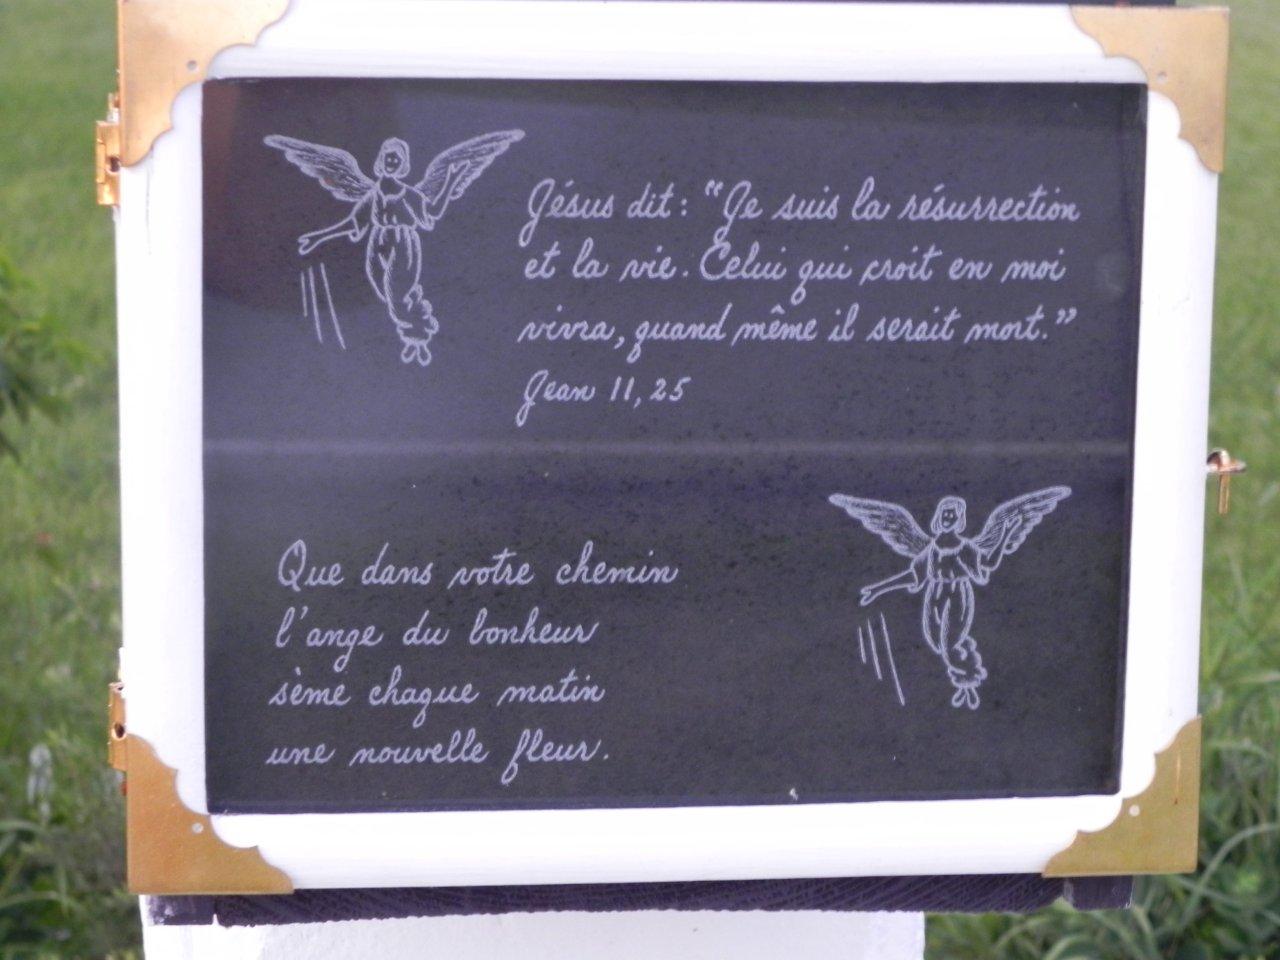 Jésus dit : "Je suis la résurrection
et la vie. Celui qui croit en moi
vivra, quand même il serait mort."
Jean 11, 25
Que dans votre chemin
l'ange du bonheur
sème chaque matin
une nouvelle fleur.